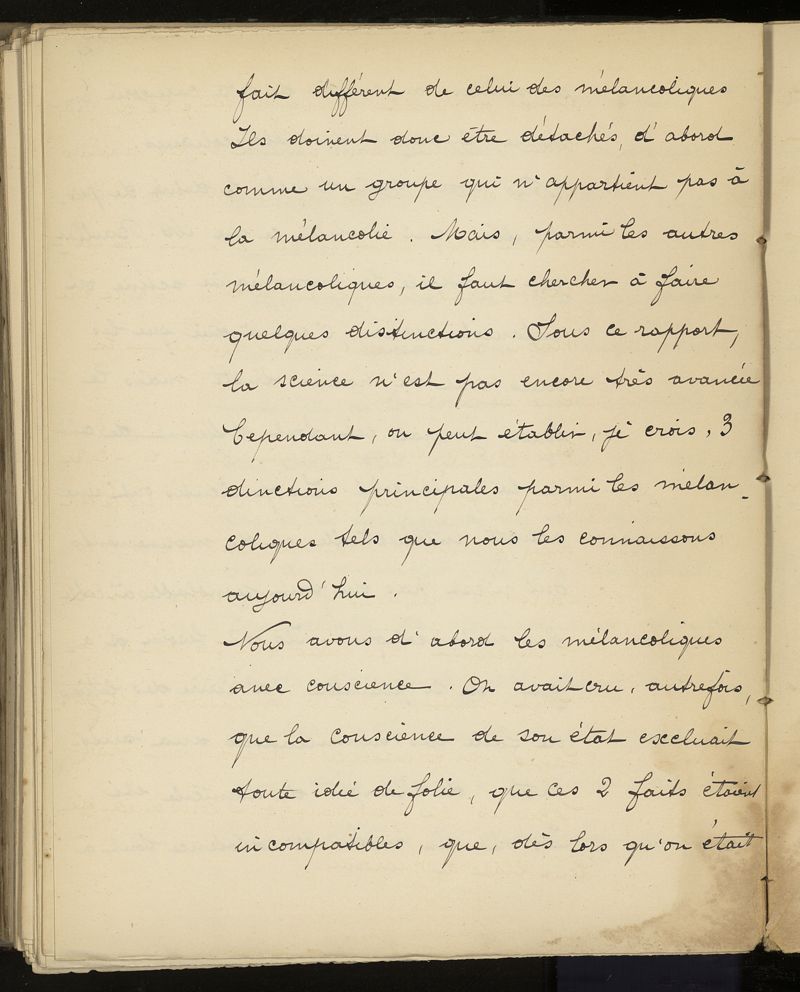 fait différent de celui des mélancoliques
Ils doivent donc être détachés, d'abord
comme un groupe qui n'appartient pas à
la mélancolie. Mais, parmi les autres
mélancoliques, il faut chercher à faire
quelques distinctions. Sous ce rapport,
la science n'est pas encore très avancée
Cependant, on peut établir, je crois, 3
dinctions principales parmi les mélan-
coliques tels que nous les connaissons
aujourd'hui.
Nous avons d'abord les mélancoliques
avec conscience. On avait cru, autrefois,
que la conscience de son état excluait
toute idée de folie, que ces 2 faits étaient
incompatibles, que, dès lors qu'on était